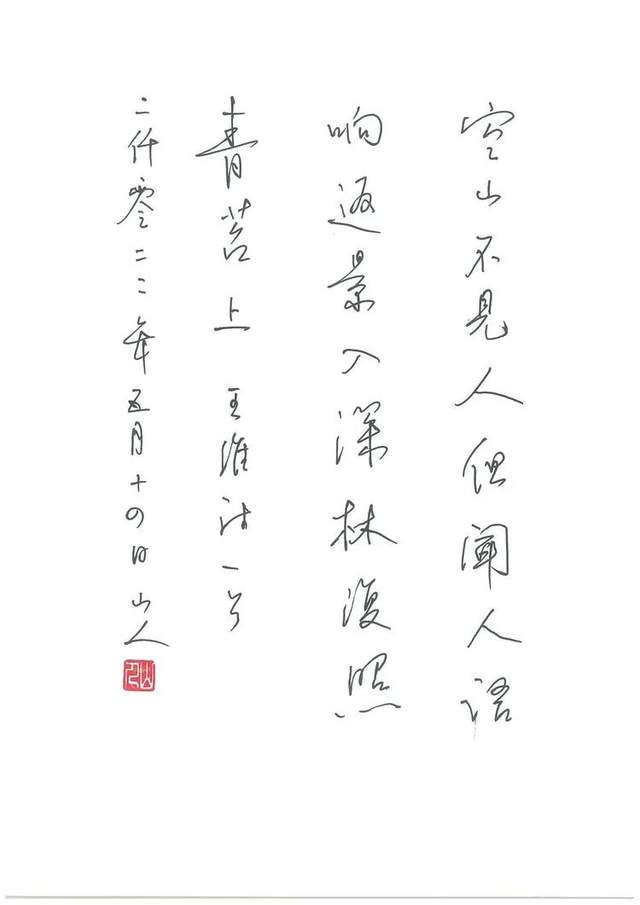 空山不見人但闻人语
响返景入深林復照
青苔上 王维诗一首
二仟零二二年五月十四日山人
山人